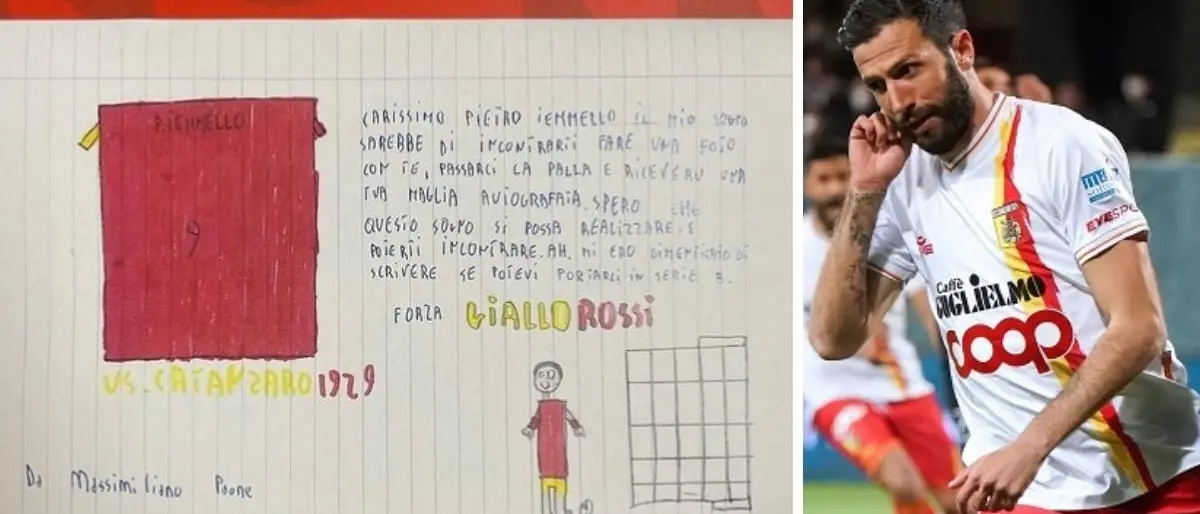 P.IEMMELLO
9
CARISSIMO PIETRO IEMMELLO IL MIO SOGNO
SAREBBE DI INCONTRARTI FARE UNA FOTO
CON TE, PASSARCI LA PALLA E RICEVERE UNA
TUA MAGLIA AUTOGRAFATA. SPERO CHE
QUESTO SOGNO SI POSSA REALIZZARE E
POTERTI INCONTRARE. AH. MI ERO DIMENTICATO DI
SCRIVERE SE POTEVI PORTARCI IN SERIE B.
FORZA GIALLO ROSSI
US. CATANZARO 1929
Da Massimiliano Paone
EYESPO
Caffè
GUGLIELMO
coop